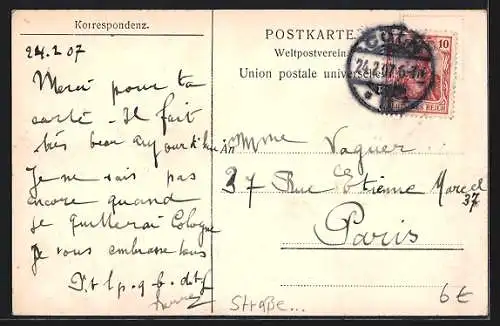 Korrespondenz.
24.2.07
Merci pour ta
carte. Il fait
très beau aujourd'hui
Je ne sais pas
encore quand
je quitterai Cologne
Je vous embrasse tous
POSTKARTE
Weltpostverein
Union postale universelle
24.2.07.6-7N
10
REICH
Mme Vaguer
37 Rue Etienne Marcel
37
Paris
Straße...
6€